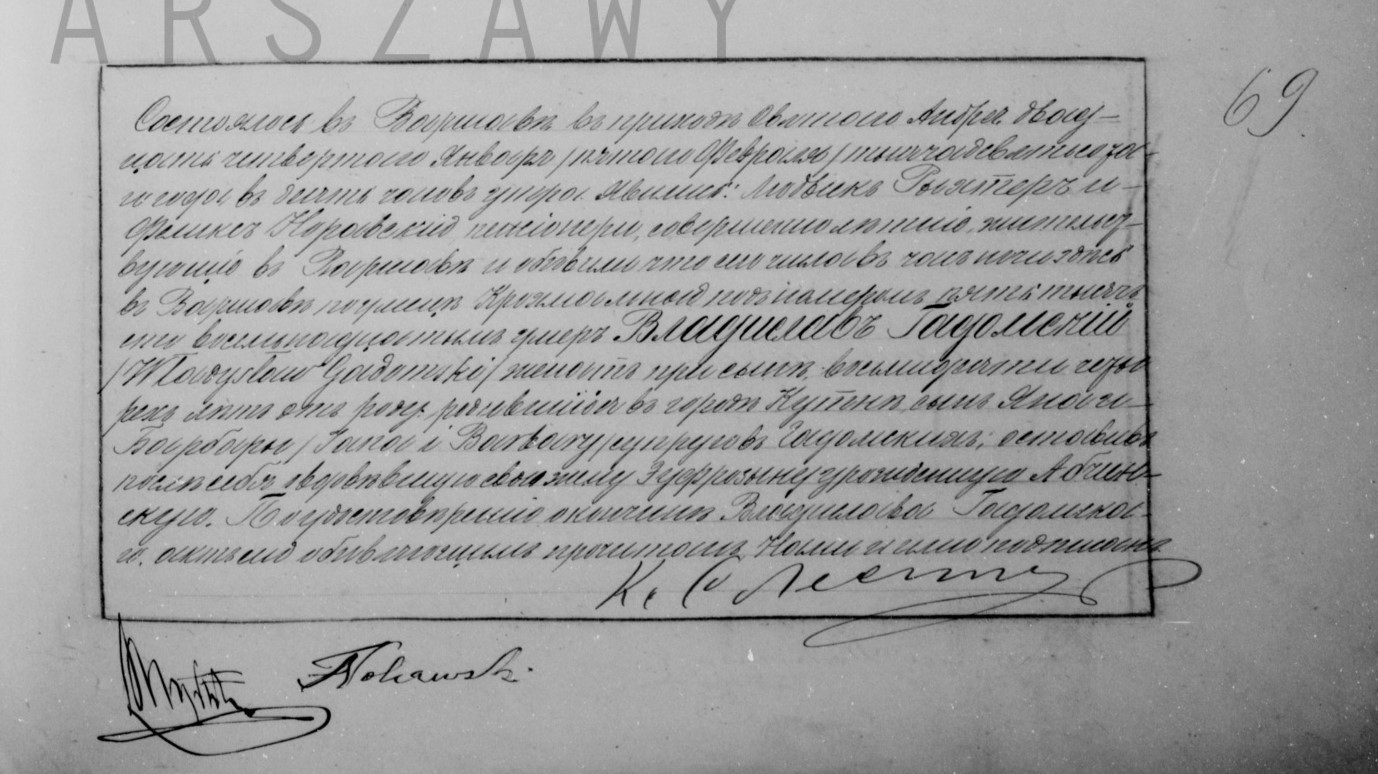 ARSZAWY
69
Состоялось въ Варшавѣ въ приходѣ Святаго Андрея двад-
цать четвертаго Января / пятаго Февраля / тысяча девятьсота-
го года въ десять часовъ утра. Явились: Людвикъ и-
Феликсъ пенсіонеры, совершеннолѣтніе, жительст-
вующіе въ Варшавѣ и объявили что сего числа въ часъ ночи здѣсь
въ Варшавѣ по улицѣ подъ номеромъ пять тысячъ
сто восемнадцатымъ умеръ Владиславъ Гадомскій
/Władysław Gadomski/ при сынѣ, восьмидесяти четы-
рехъ лѣтъ отъ роду, родившійся въ городѣ сынъ Яна и-
Барбары /Jana i Barbary/ супруговъ Гадомскихъ; оставивъ
послѣ себя овдовѣвшую свою жену Эуфрозыну урожденную
скую. По удостовѣреніи о кончинѣ Владислава Гадомска-
го, актъ сей объявляющимъ прочитанъ, Нами и ими подписанъ.
К. С.